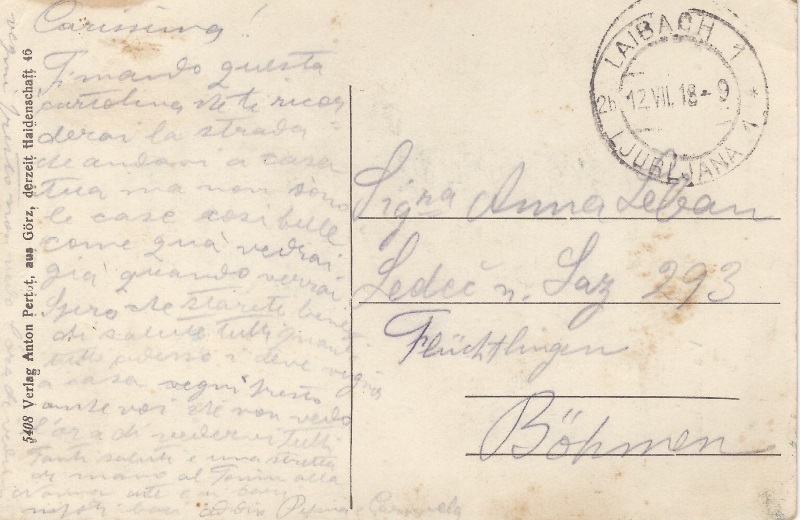 Carissima!
T'mando questa
cartolina che ti ricor
derai la strada
de andarvi a casa
tua ma non sono
le case cosi belle
come qua vedrai
già quando verrai
Spero che starete bene
di salute tutti quanti
tutti adesso i deve vegnir
a casa vegni presto
che non vedo
l'ora di vedervi tutti
Tanti saluti e una stretta
di mano al alla
nipoti baci Pepina Carmela
5408 Verlag Anton Pertot, aus Görz, derzeit Haidenschaft 46
LAIBACH 1
2b 12.VII.18-9 *
LJUBLJANA 1
Sigra Anna Leban
Ledeč n. Saz 293
Flüchtlingen
Böhmen